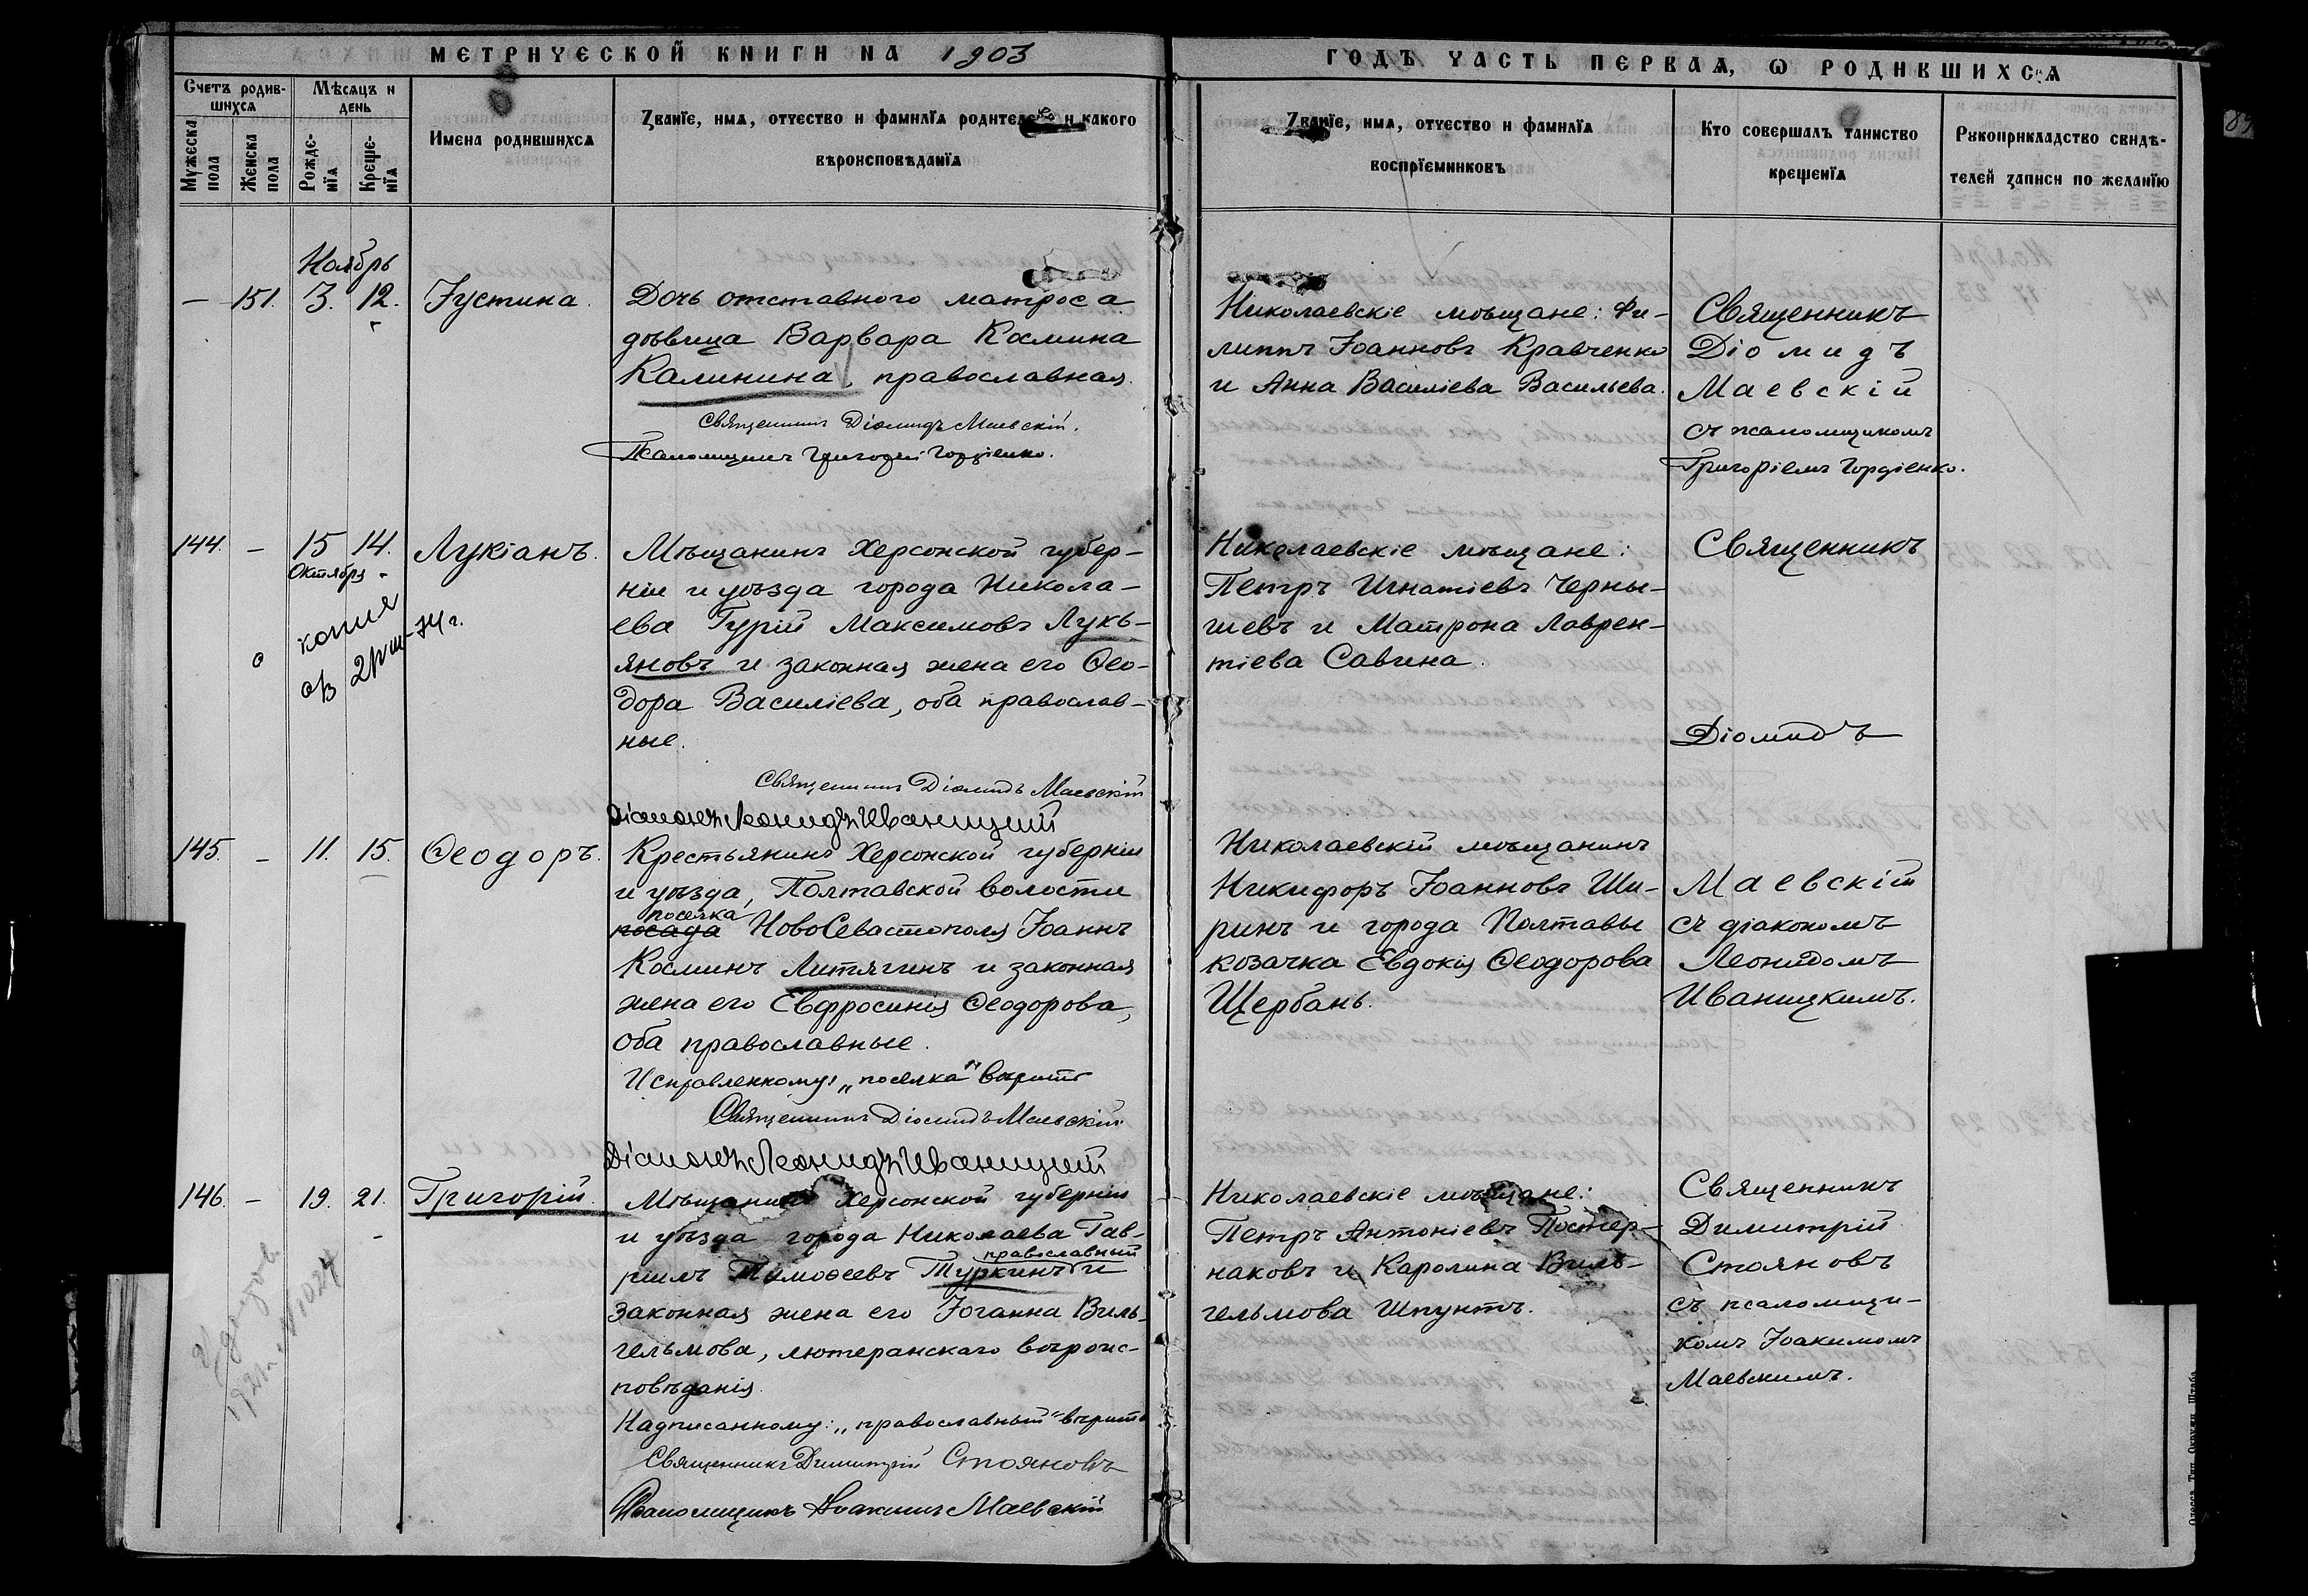 МЕТРИЧЕСКОЙ КНИГИ НА 1903
ГОДЪ ЧАСТЬ ПЕРВАѦ, Ѡ РОДИВШИХСѦ
Счетъ родив-
шихсѧ
Мѣсѧцъ и
день
Мꙋжеска
пола
Женска
пола
Рожде-
нїѧ
Креще-
нїѧ
Имена родившихсѧ
Званїе, имѧ, отчество и фамилїѧ родителей и какого
вѣроисповѣданїѧ
Званїе, имѧ, отчество и фамилїѧ
воспрїемниковъ
Кто совершалъ таинство
крещенїѧ
Рꙋкоприкладство свидѣ-
телей записи по желанїю
Ноябрь
— 151. 3. 12. Іустина.
Дочь отставного матроса
дѣвица Варвара Космина
Калинина, православная.
Священникъ Діомидъ Маевскій.
Псаломщикъ Григорій Гордіенко.
Николаевскіе мѣщане: Фи-
липпъ Іоанновъ Кравченко
и Анна Василіева Васильева.
Священникъ
Діомидъ
Маевскій
съ псаломщикомъ
Григоріемъ Гордіенко.
144. — 15 14. Лукіанъ.
Октября
копия
74 г.
Мѣщанинъ Херсонской губер-
ніи и уѣзда города Никола-
ева Гурій Максимовъ Лукь-
яновъ и законная жена его Ѳео-
дора Василіева, оба православ-
ные.
Священникъ Діомидъ Маевскій
Діаконъ Леонидъ Иваницкій
Николаевскіе мѣщане:
Петръ Игнатіевъ Черны-
шевъ и Матрона Лаврен-
тіева Савина.
Священникъ
Діомидъ
145. — 11. 15. Ѳеодоръ.
Крестьянинъ Херсонской губерніи
и уѣзда, Полтавской волости
поселка
посада НовоСевастополя Іоаннъ
Косминъ Литягинъ и законная
жена его Евфросинія Ѳеодорова,
оба православные.
Исправленному: „поселка" вѣрить
Священникъ Діомидъ Маевскій
Діаконъ Леонидъ Иваницкій
Николаевскій мѣщанинъ
Никифоръ Іоанновъ Ши-
ринъ и города Полтавы
козачка Евдокія Ѳеодорова
Щербань.
Маевскій
съ діакономъ
Леонидомъ
Иваницкимъ.
146. — 19. 21. Григорій.
Мѣщанинъ Херсонской губерніи
и уѣзда города Николаева Гав-
православный
ріилъ Тимоѳеевъ Туркинъ и
законная жена его Іоганна Виль-
гельмова, лютеранскаго вѣроис-
повѣданія.
Надписанному: „православный" вѣрить
Священникъ Димитрій Стояновъ
Псаломщикъ Іоакимъ Маевскій
Николаевскіе мѣщане:
Петръ Антоніевъ Постер-
наковъ и Каролина Виль-
гельмова Шпунтъ.
Священникъ
Димитрій
Стояновъ
съ псаломщи-
комъ Іоакимомъ
Маевскимъ.